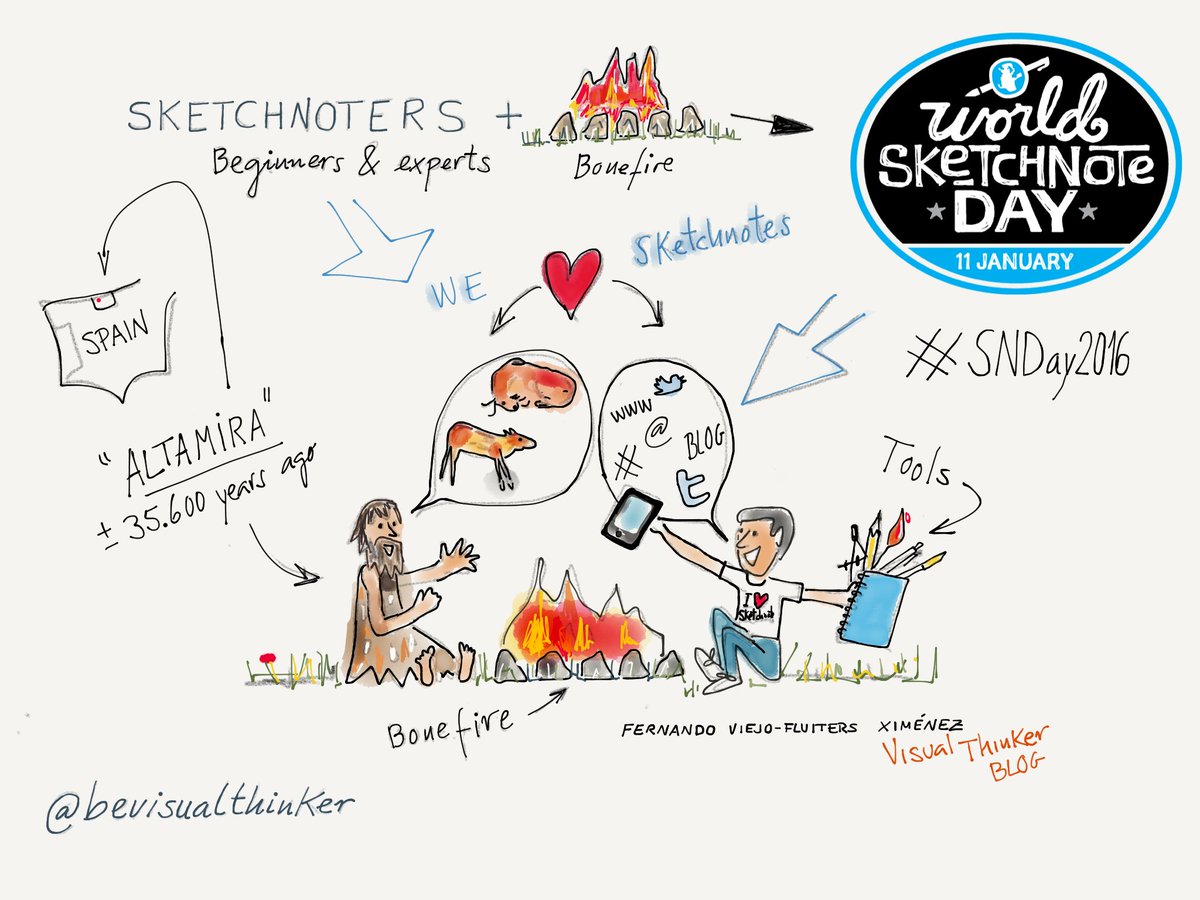 SKETCHNOTERS +
Beginners & experts
Bonefire
World
SKETCHNOTE
DAY
11 JANUARY
#SNDay2016
WE
Sketchnotes
SPAIN
"ALTAMIRA"
± 35.600 years ago
WWW
@
BLOG
#
Tools
I
Bonefire
FERNANDO VIEJO-FLUITERS XIMÉNEZ
Visual Thinker
BLOG
@bevisualthinker